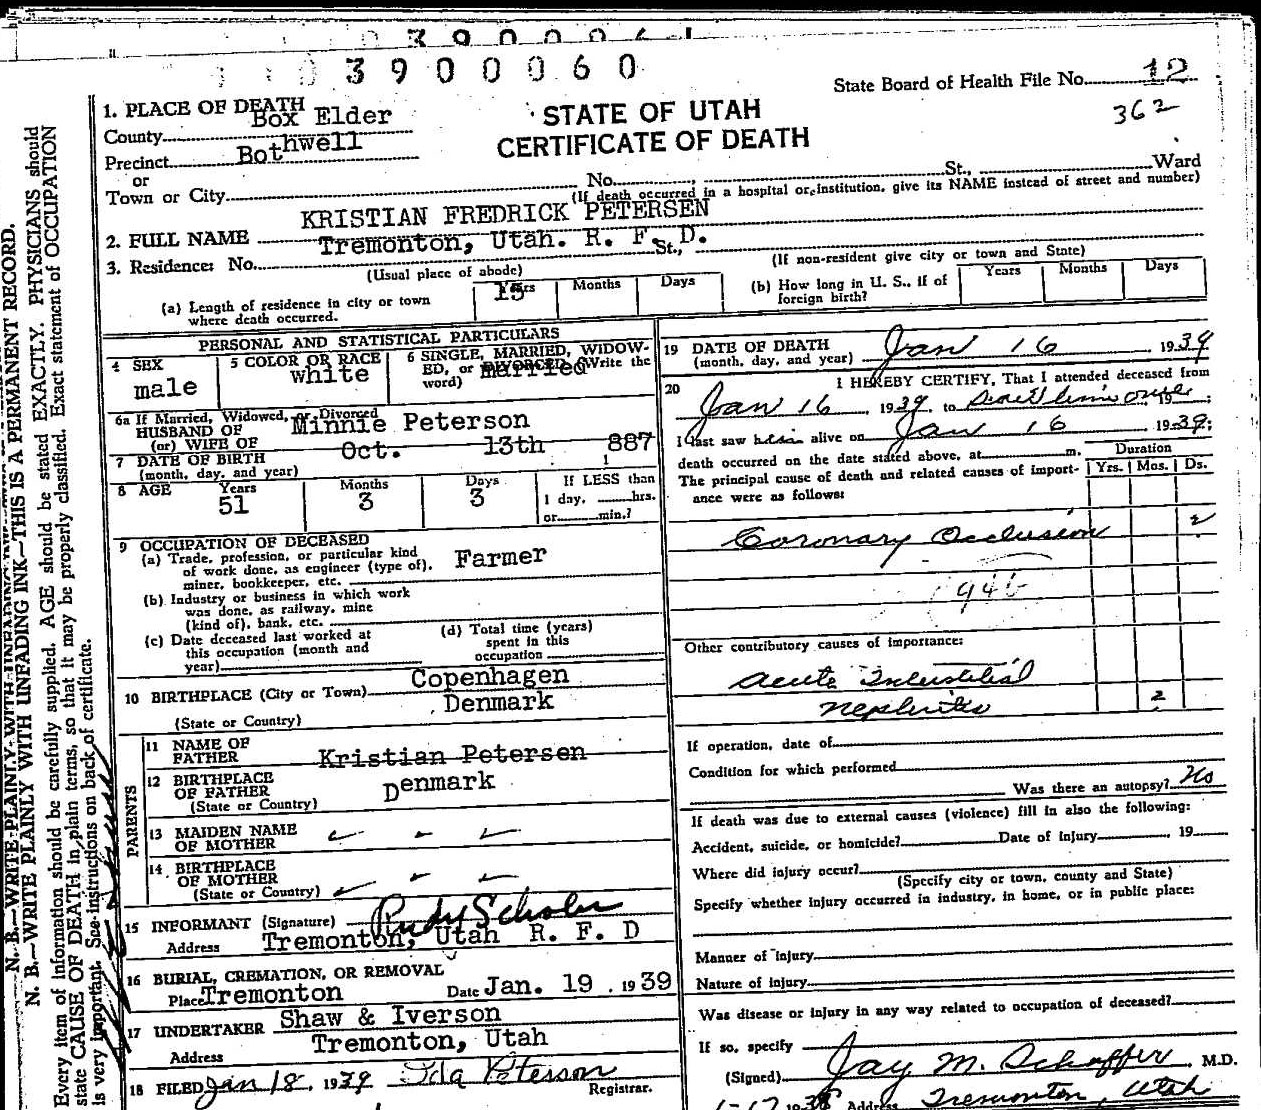 3900060
State Board of Health File No. 12
362
STATE OF UTAH
CERTIFICATE OF DEATH
1. PLACE OF DEATH
County Box Elder
Precinct Bothwell
or
Town or City No. St., Ward
(If death occurred in a hospital or institution, give its NAME instead of street and number)
2. FULL NAME KRISTIAN FREDRICK PETERSEN
3. Residence: No. Tremonton, Utah. R. F. D. St.,
(Usual place of abode)
(If non-resident give city or town and State)
(a) Length of residence in city or town where death occurred. Years 15 Months Days
(b) How long in U. S., if of foreign birth? Years Months Days
PERSONAL AND STATISTICAL PARTICULARS
4 SEX male
5 COLOR OR RACE white
6 SINGLE, MARRIED, WIDOWED, or DIVORCED (Write the word) married
6a If Married, Widowed, or Divorced
HUSBAND OF
(or) WIFE OF Minnie Peterson
7 DATE OF BIRTH
(month, day, and year) Oct. 13th 1887
8 AGE Years 51 Months 3 Days 3 If LESS than 1 day, hrs. or min.?
9 OCCUPATION OF DECEASED
(a) Trade, profession, or particular kind of work done, as engineer (type of), miner, bookkeeper, etc. Farmer
(b) Industry or business in which work was done, as railway, mine (kind of), bank, etc.
(c) Date deceased last worked at this occupation (month and year)
(d) Total time (years) spent in this occupation
10 BIRTHPLACE (City or Town) Copenhagen
(State or Country) Denmark
PARENTS
11 NAME OF FATHER Kristian Petersen
12 BIRTHPLACE OF FATHER Denmark
(State or Country)
13 MAIDEN NAME OF MOTHER
14 BIRTHPLACE OF MOTHER
(State or Country)
15 INFORMANT (Signature) Rudy Scholer
Address Tremonton, Utah R. F. D
16 BURIAL, CREMATION, OR REMOVAL
Place Tremonton Date Jan. 19. 1939
17 UNDERTAKER Shaw & Iverson
Address Tremonton, Utah
18 FILED Jan 18, 1939 Ida Peterson
Registrar.
19 DATE OF DEATH
(month, day, and year) Jan 16 1939
20 I HEREBY CERTIFY, That I attended deceased from
Jan 16, 1939, to 19 ;
I last saw him alive on Jan 16 1939;
death occurred on the date stated above, at m.
The principal cause of death and related causes of importance were as follows:
Duration
Yrs. Mos. Ds.
Coronary Occlusion 2
Other contributory causes of importance:
acute Interstitial
nephritis 2
If operation, date of
Condition for which performed
Was there an autopsy? No
If death was due to external causes (violence) fill in also the following:
Accident, suicide, or homicide? Date of injury , 19
Where did injury occur?
(Specify city or town, county and State)
Specify whether injury occurred in industry, in home, or in public place:
Manner of injury
Nature of injury
Was disease or injury in any way related to occupation of deceased?
If so, specify
(Signed) Jay M. Schaffer, M.D.
1-17 1938 Address Tremonton, Utah
N. B.—WRITE PLAINLY WITH UNFADING INK—THIS IS A PERMANENT RECORD.
Every item of information should be carefully supplied. AGE should be stated EXACTLY. PHYSICIANS should
state CAUSE OF DEATH in plain terms, so that it may be properly classified. Exact statement of OCCUPATION
is very important. See instructions on back of certificate.